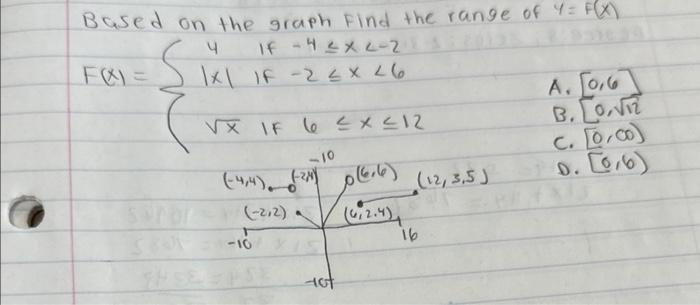 Based on the graph Find the range of Y = F(x)
4 IF -4 ≤ x < -2
F(x) = { |x| IF -2 ≤ x < 6
√x IF 6 ≤ x ≤ 12
A. [0,6]
B. [0,√12
C. [0,∞)
D. [0,6)
-10
(-4,4) (-2,4) (6,6) (12,3,5)
(-2,2) (6,2.4)
-10 16
-10